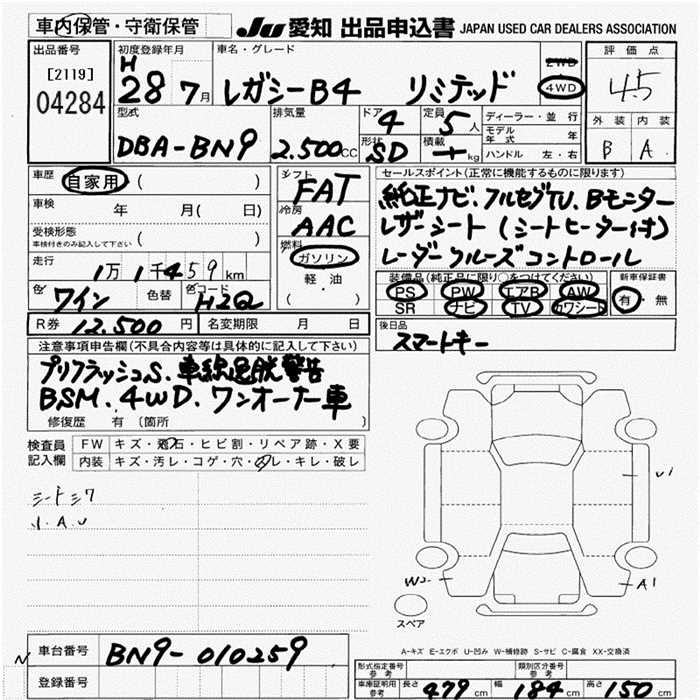 車内保管・守衛保管
JU 愛知 出品申込書 JAPAN USED CAR DEALERS ASSOCIATION
出品番号
[2119]
04284
初度登録年月
H
28 7月
車名・グレード
レガシーB4 リミテッド
2WD
4WD
評価点
4.5
外装 内装
B A
型式
DBA-BN9
排気量
2.500cc
ドア
4
形状
SD
定員
5人
積載
kg
ディーラー・並行
モデル年式 年
ハンドル 左・右
車歴 自家用 ( )
車検 年 月( 日)
受検形態
車検付きのみ記入して下さい ( )
走行
1万1千459km
色 ワイン 色替 色コード H2Q
R券 12.500円 名変期限 月 日
シフト
FAT
冷房
AAC
燃料
ガソリン
軽油
( ・ )
セールスポイント(正常に機能するものに限ります)
純正ナビ、フルセグTV、Bモニター
レザーシート(シートヒーター付)
レーダークルーズコントロール
装備品(純正品に限り○をつけてください)
PS PW エアB AW
SR ナビ TV カワシート
新車保証書
有・無
後日品
スマートキー
注意事項申告欄(不具合内容等は具体的に記入して下さい)
プリクラッシュS、車線逸脱警告
BSM、4WD、ワンオーナー車
修復歴 有(箇所 )
検査員
記入欄
FW キズ・飛石・ヒビ割・リペア跡・X要
内装 キズ・汚レ・コゲ・穴・スレ・キレ・破レ
シートシワ
小.A.U
U1
W2
A1
スペア
A-キズ E-エクボ U-凹み W-補修跡 S-サビ C-腐食 XX-交換済
N
車台番号 BN9-010259
登録番号
形式指定番号
参考
類別区分番号
参考
車庫証明用
参考
長さ 479cm 幅 184cm 高さ 150cm